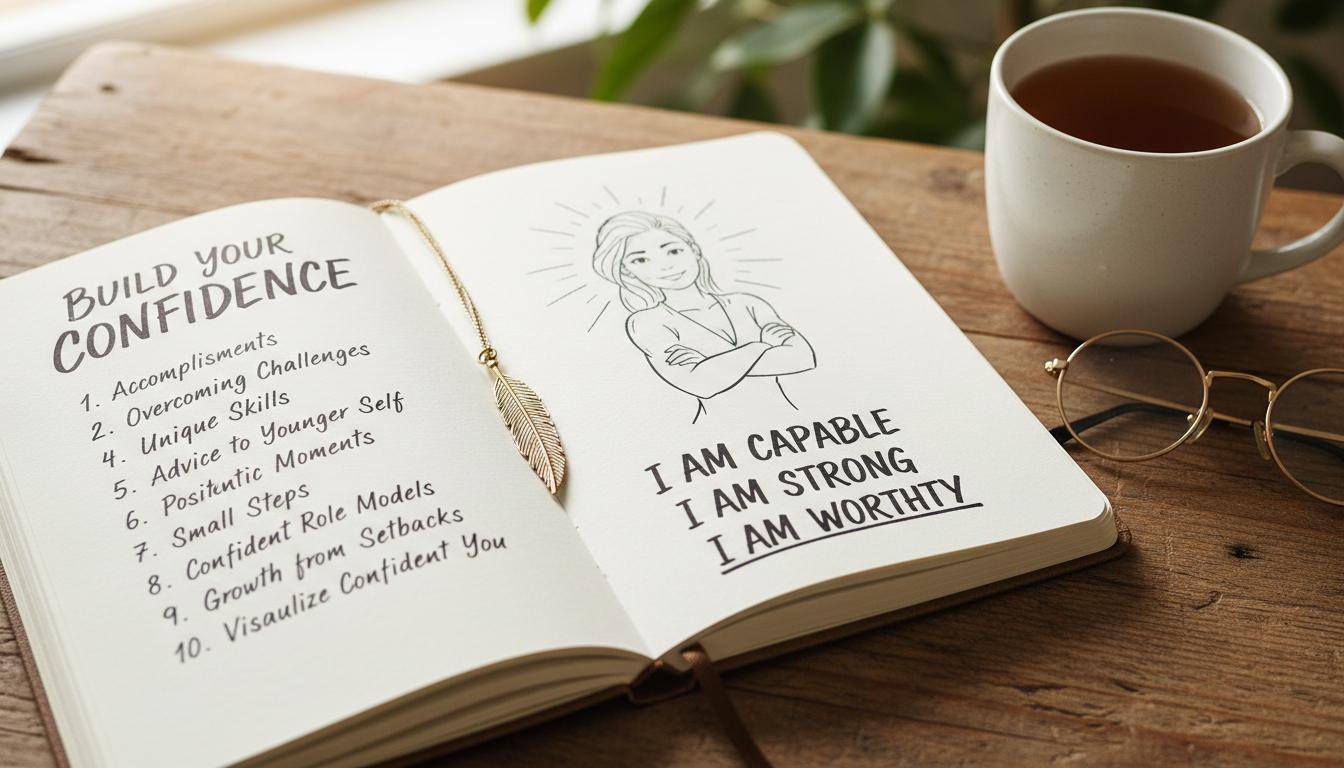 BUILD YOUR
CONFIDENCE
1. Accomplisments
2. Overcoming Challenges
4. Unique Skills
5. Advice to Younger Self
6. Positentic Moments
7. Small Steps
8. Confident Role Models
9. Growth from Setbacks
10. Visaulize Confident You
I AM CAPABLE
I AM STRONG
I AM WORTHTY